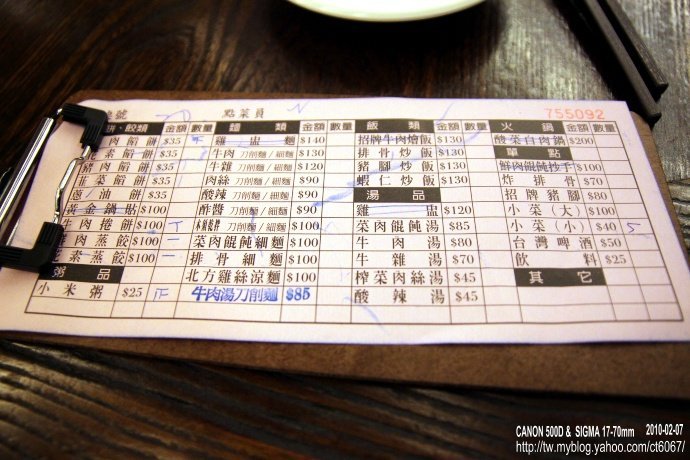 號 點菜員 755092
餅、餃類 金額 數量 麵類 金額 數量 飯類 金額 數量 火鍋 金額 數量
肉餡餅 $35 雞盅麵 $140 招牌牛肉燴飯 $130 酸菜白肉鍋 $200
素餡餅 $35 牛肉 刀削麵/細麵 $130 排骨炒飯 $130 單點
豬肉餡餅 $35 牛雜 刀削麵/細麵 $120 豬腳炒飯 $130 鮮肉餛飩抄手 $100
韭菜餡餅 $35 肉絲 刀削麵/細麵 $90 蝦仁炒飯 $130 炸排骨 $70
蔥油餅 $35 酸辣 刀削麵/細麵 $90 湯品 招牌豬腳 $80
黃金鍋貼 $100 酢醬 刀削麵/細麵 $90 雞盅 $120 小菜(大) $100
牛肉捲餅 $100 刀削麵/細麵 $100 菜肉餛飩湯 $85 小菜(小) $40
肉蒸餃 $100 菜肉餛飩細麵 $100 牛肉湯 $80 台灣啤酒 $50
素蒸餃 $100 排骨細麵 $100 牛雜湯 $70 飲料 $25
粥品 北方雞絲涼麵 $100 榨菜肉絲湯 $45 其它
小米粥 $25 正 牛肉湯刀削麵 $85 酸辣湯 $45
CANON 500D & SIGMA 17-70mm 2010-02-07
http://tw.myblog.yahoo.com/ct6067/